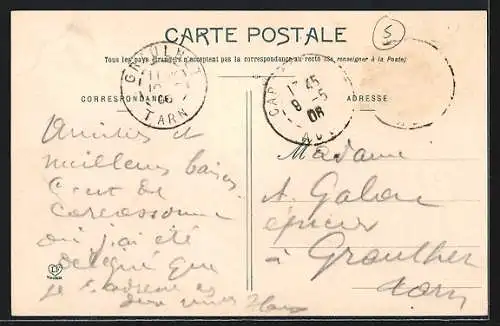 CARTE POSTALE
Tous les pays étrangers n'acceptent pas la correspondance au recto (Se renseigner à la Poste)
CORRESPONDANCE
ADRESSE
GRAULHET
TARN
17 45
9 -5
06
5
Amitiés et
meilleurs baisers
C'est de
Carcassonne
où j'ai été
que
je t'adresse
Madame
A. Galou
épicier
à Graulhet
Tarn